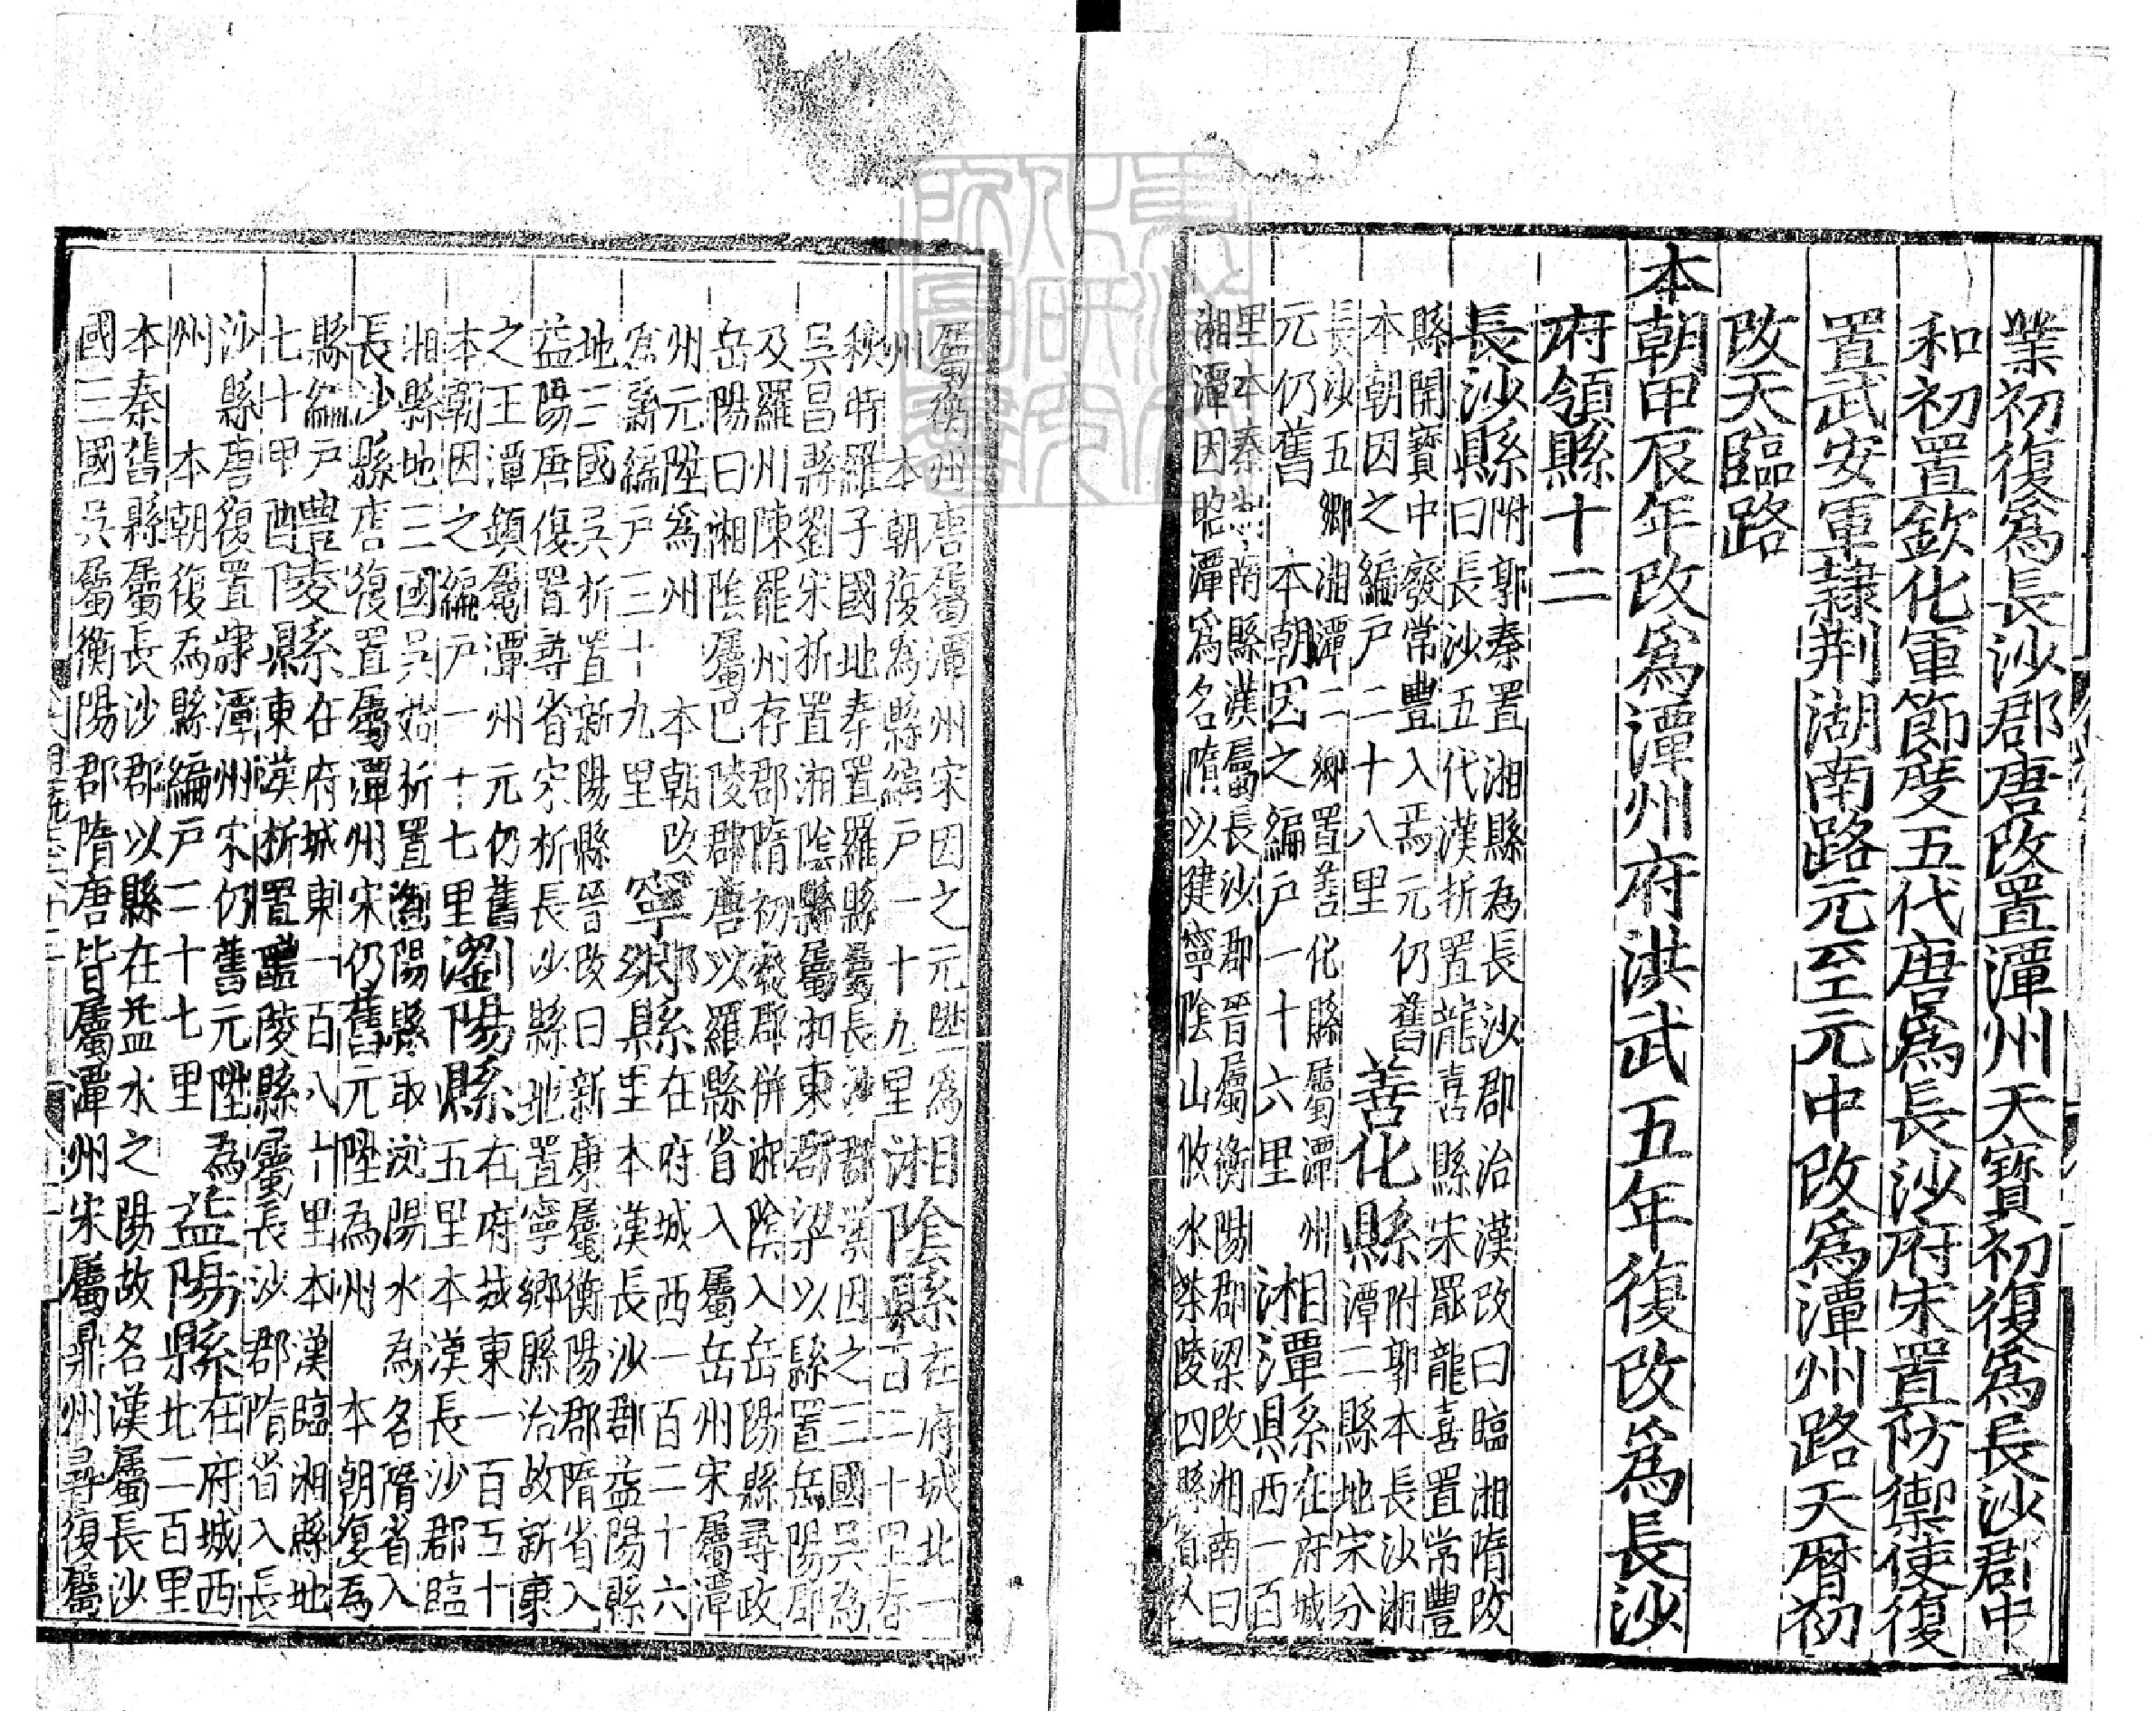 業初復爲長沙郡唐改置潭州天寶初復爲長沙郡中
和初置欽化軍節度五代唐爲長沙府宋置防禦使復
置武安軍隷荆湖南路元至元中改爲潭州路天曆初
改天臨路
本朝甲辰年改爲潭州府洪武五年復改爲長沙
府領縣十二
長沙縣附郭秦置湘縣為長沙郡治漢改曰臨湘隋改
曰長沙五代漢析置龍喜縣宋罷龍喜置常豐
縣開寶中廢常豐入焉元仍舊
本朝因之編戶二十八里
善化縣附郭本長沙湘
潭二縣地宋分
長沙五鄉湘潭二鄉置善化縣屬潭州
元仍舊 本朝因之編戶一十六里
湘潭縣在府城
西一百
里本秦湘南縣漢屬長沙郡晉屬衡陽郡梁改湘南曰
湘潭因昭潭爲名隋以建寧陰山攸水茶陵四縣省入
屬衡州唐屬潭州宋因之元陞爲
州 本朝復爲縣編戶一十九里
湘陰縣在府城北一
百二十里春
秋時羅子國地秦置羅縣屬長沙郡漢因之三國吳為
吳昌縣劉宋析置湘陰縣屬湘東郡梁以縣置岳陽郡
及羅州陳罷州存郡隋初廢郡併湘陰入岳陽縣尋改
岳陽曰湘陰屬巴陵郡唐以羅縣省入屬岳州宋屬潭
州元陞爲州 本朝改
爲縣編戶三十九里
寧鄉縣在府城西一百二十六
里本漢長沙郡益陽縣
地三國吳析置新陽縣晉改曰新康屬衡陽郡隋省入
益陽唐復置尋省宋析長沙縣地置寧鄉縣治故新康
之玉潭鎮屬潭州元仍舊
本朝因之編戶一十七里
瀏陽縣在府城東一百五十
五里本漢長沙郡臨
湘縣地三國吳始析置瀏陽縣取瀏陽水為名隋省入
長沙縣唐復置屬潭州宋仍舊元陞為州 本朝復爲
縣編戶
七十里
醴陵縣在府城東一百八十里本漢臨湘縣地
東漢析置醴陵縣屬長沙郡隋省入長
沙縣唐復置隷潭州宋仍舊元陞為
州 本朝復爲縣編戶二十七里
益陽縣在府城西
北二百里
本秦舊縣屬長沙郡以縣在益水之陽故名漢屬長沙
國三國吳屬衡陽郡隋唐皆屬潭州宋屬鼎州尋復屬